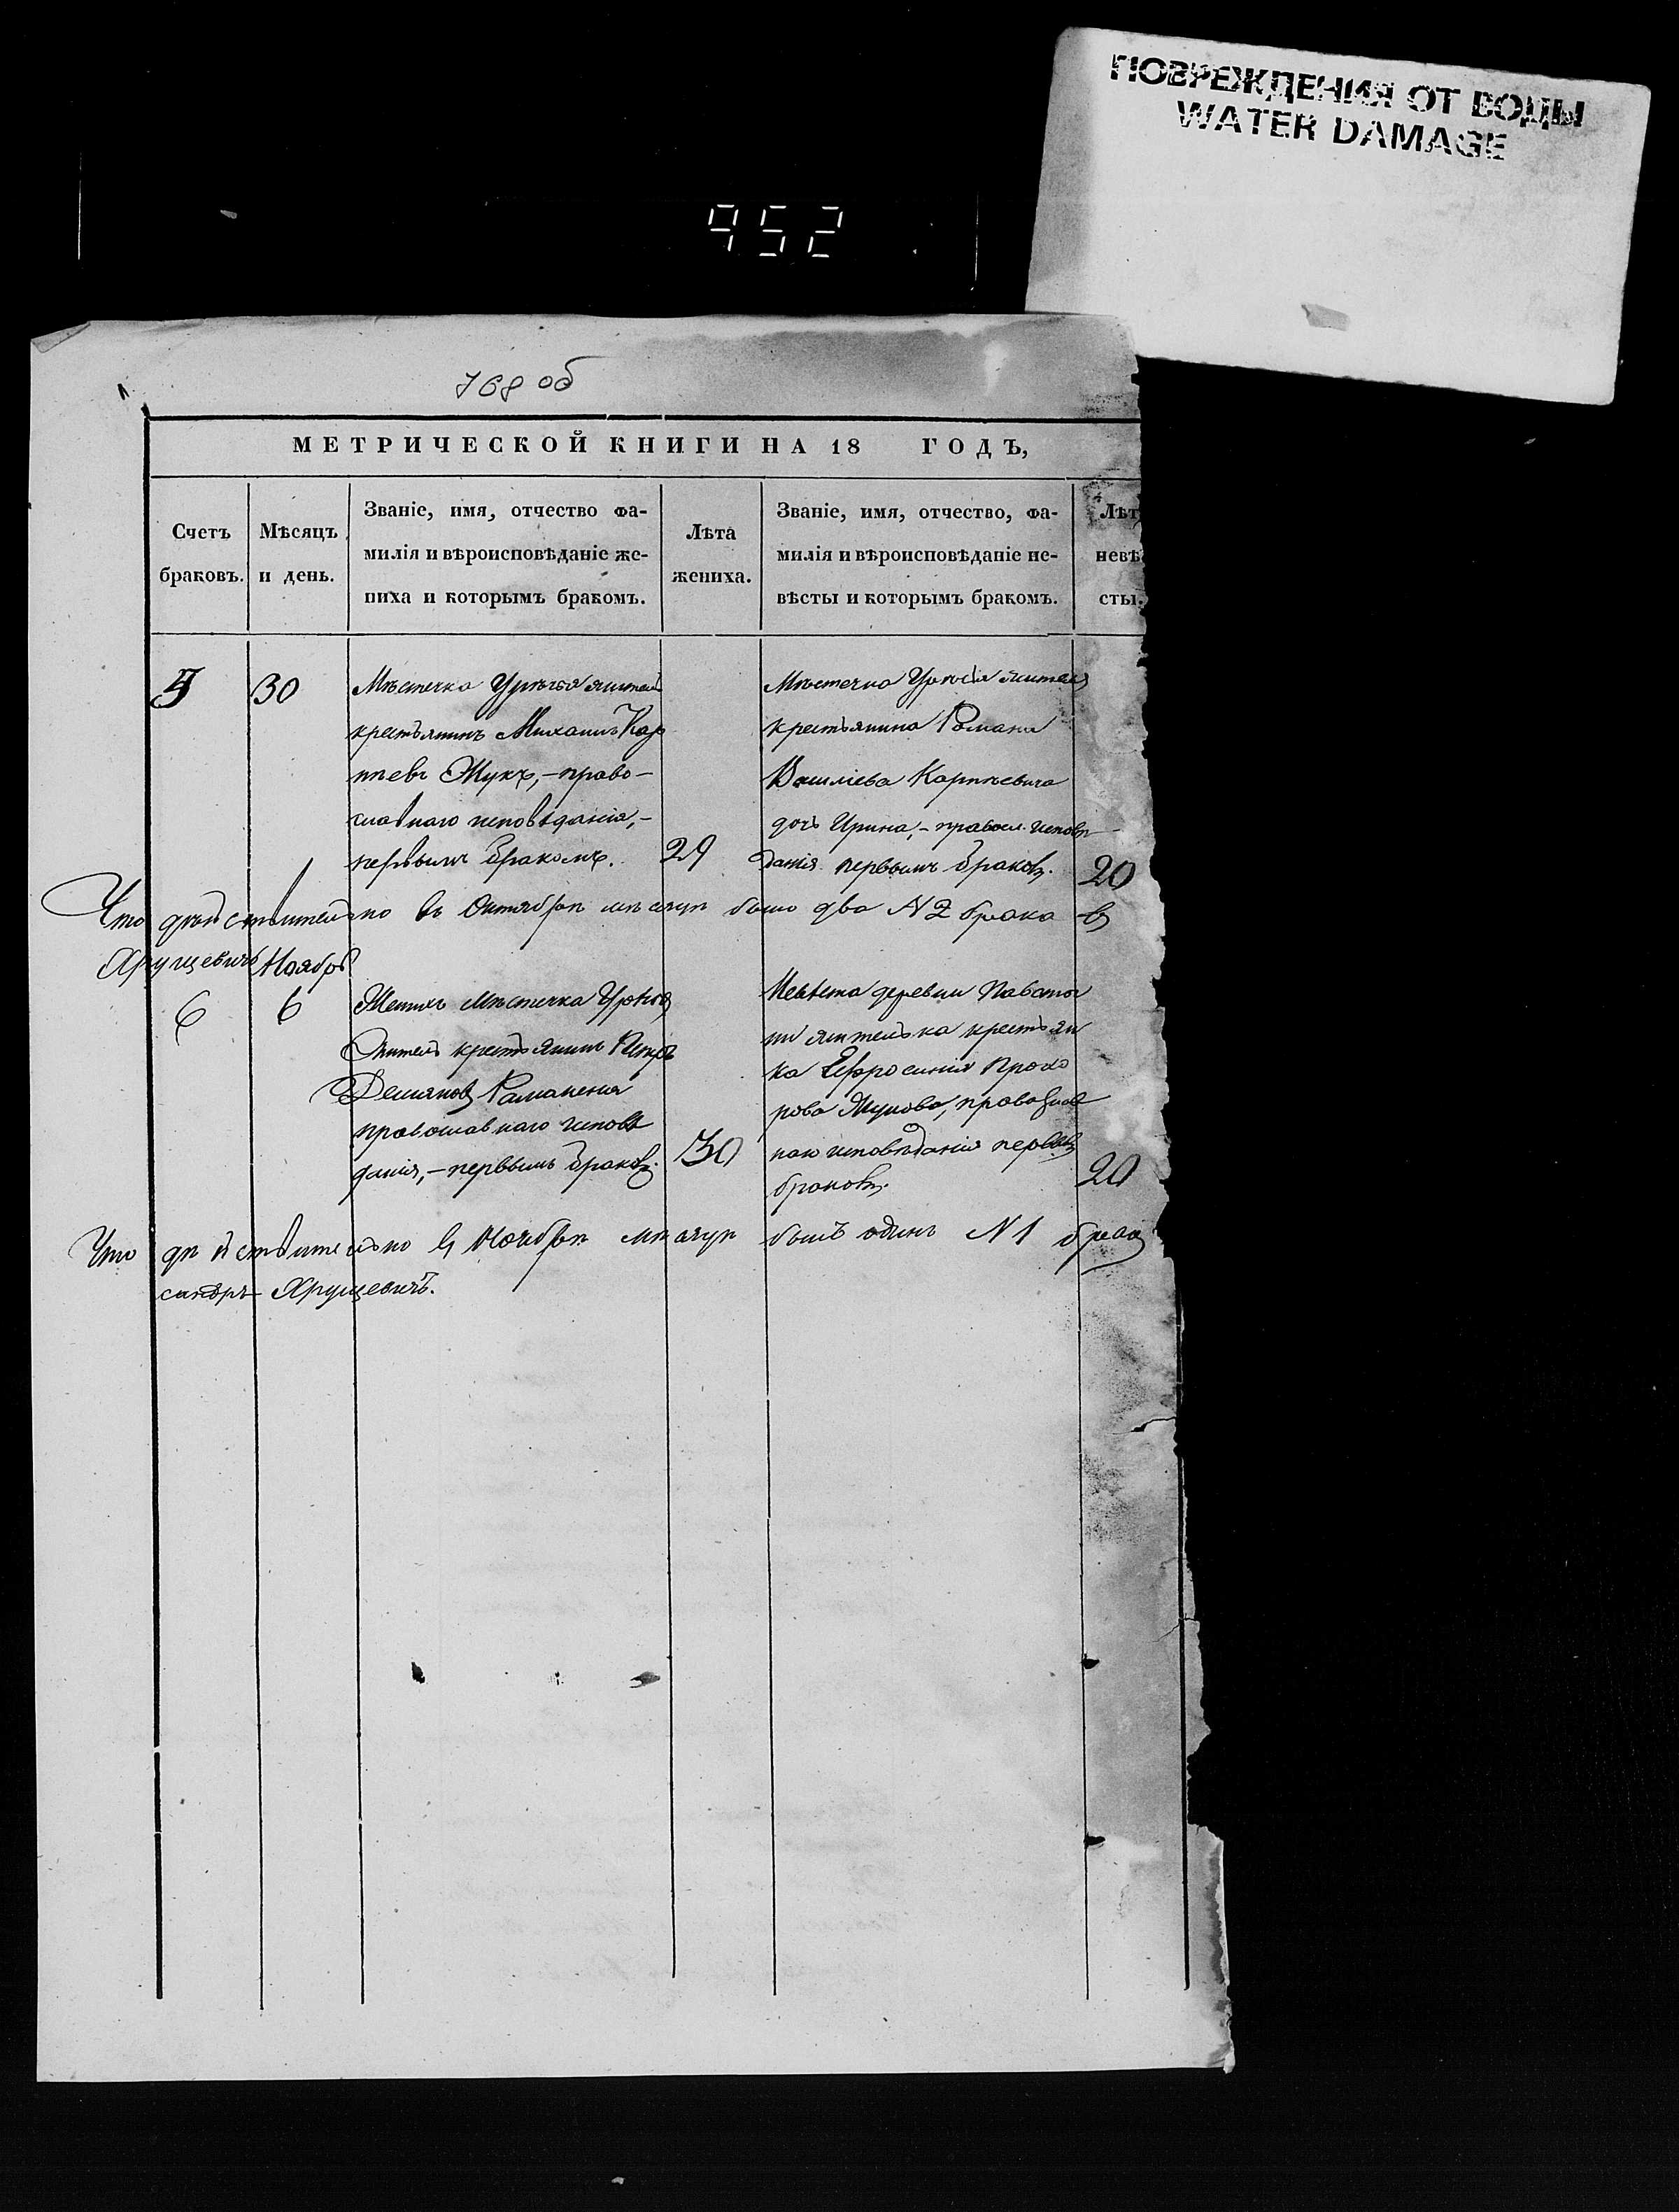 ПОВРЕЖДЕНИЯ ОТ ВОДЫ
WATER DAMAGE
952
768 об
МЕТРИЧЕСКОЙ КНИГИ НА 18 ГОДЪ,
Счетъ браковъ.
Мѣсяцъ и день.
Званіе, имя, отчество фа-
милія и вѣроисповѣданіе же-
ниха и которымъ бракомъ.
Лѣта жениха.
Званіе, имя, отчество, фа-
милія и вѣроисповѣданіе не-
вѣсты и которымъ бракомъ.
Лѣт
невѣ
сты.
5
30
Мѣстечка Урѣчья жител
крестьянинъ Михаилъ Кар
пѣевъ Жукъ, - право-
славнаго исповѣданія, -
первымъ бракомъ.
29
Мѣстечка Урѣчья жителя
крестьянина Романа
Васильева Карпѣевича
дочь Ирина, - правосл. исповѣ-
данія первымъ бракомъ.
20
Что дѣйствительно въ Октябрѣ мѣсяцѣ было два N 2 брака въ
Хрущевичъ
Ноябрь
6
6
Женихъ мѣстечка Урѣчья
житель крестьянинъ Петръ
Демьяновъ
православнаго исповѣ
данія, - первымъ бракомъ.
30
Невѣста деревни
жителька крестьян
ка Ефросинія Прохо
рова Жукова, православ
наго исповѣданія первымъ
бракомъ.
20
Что дѣйствительно въ Ноябрѣ мѣсяцѣ былъ одинъ N 1 брак
сандръ Хрущевичъ.